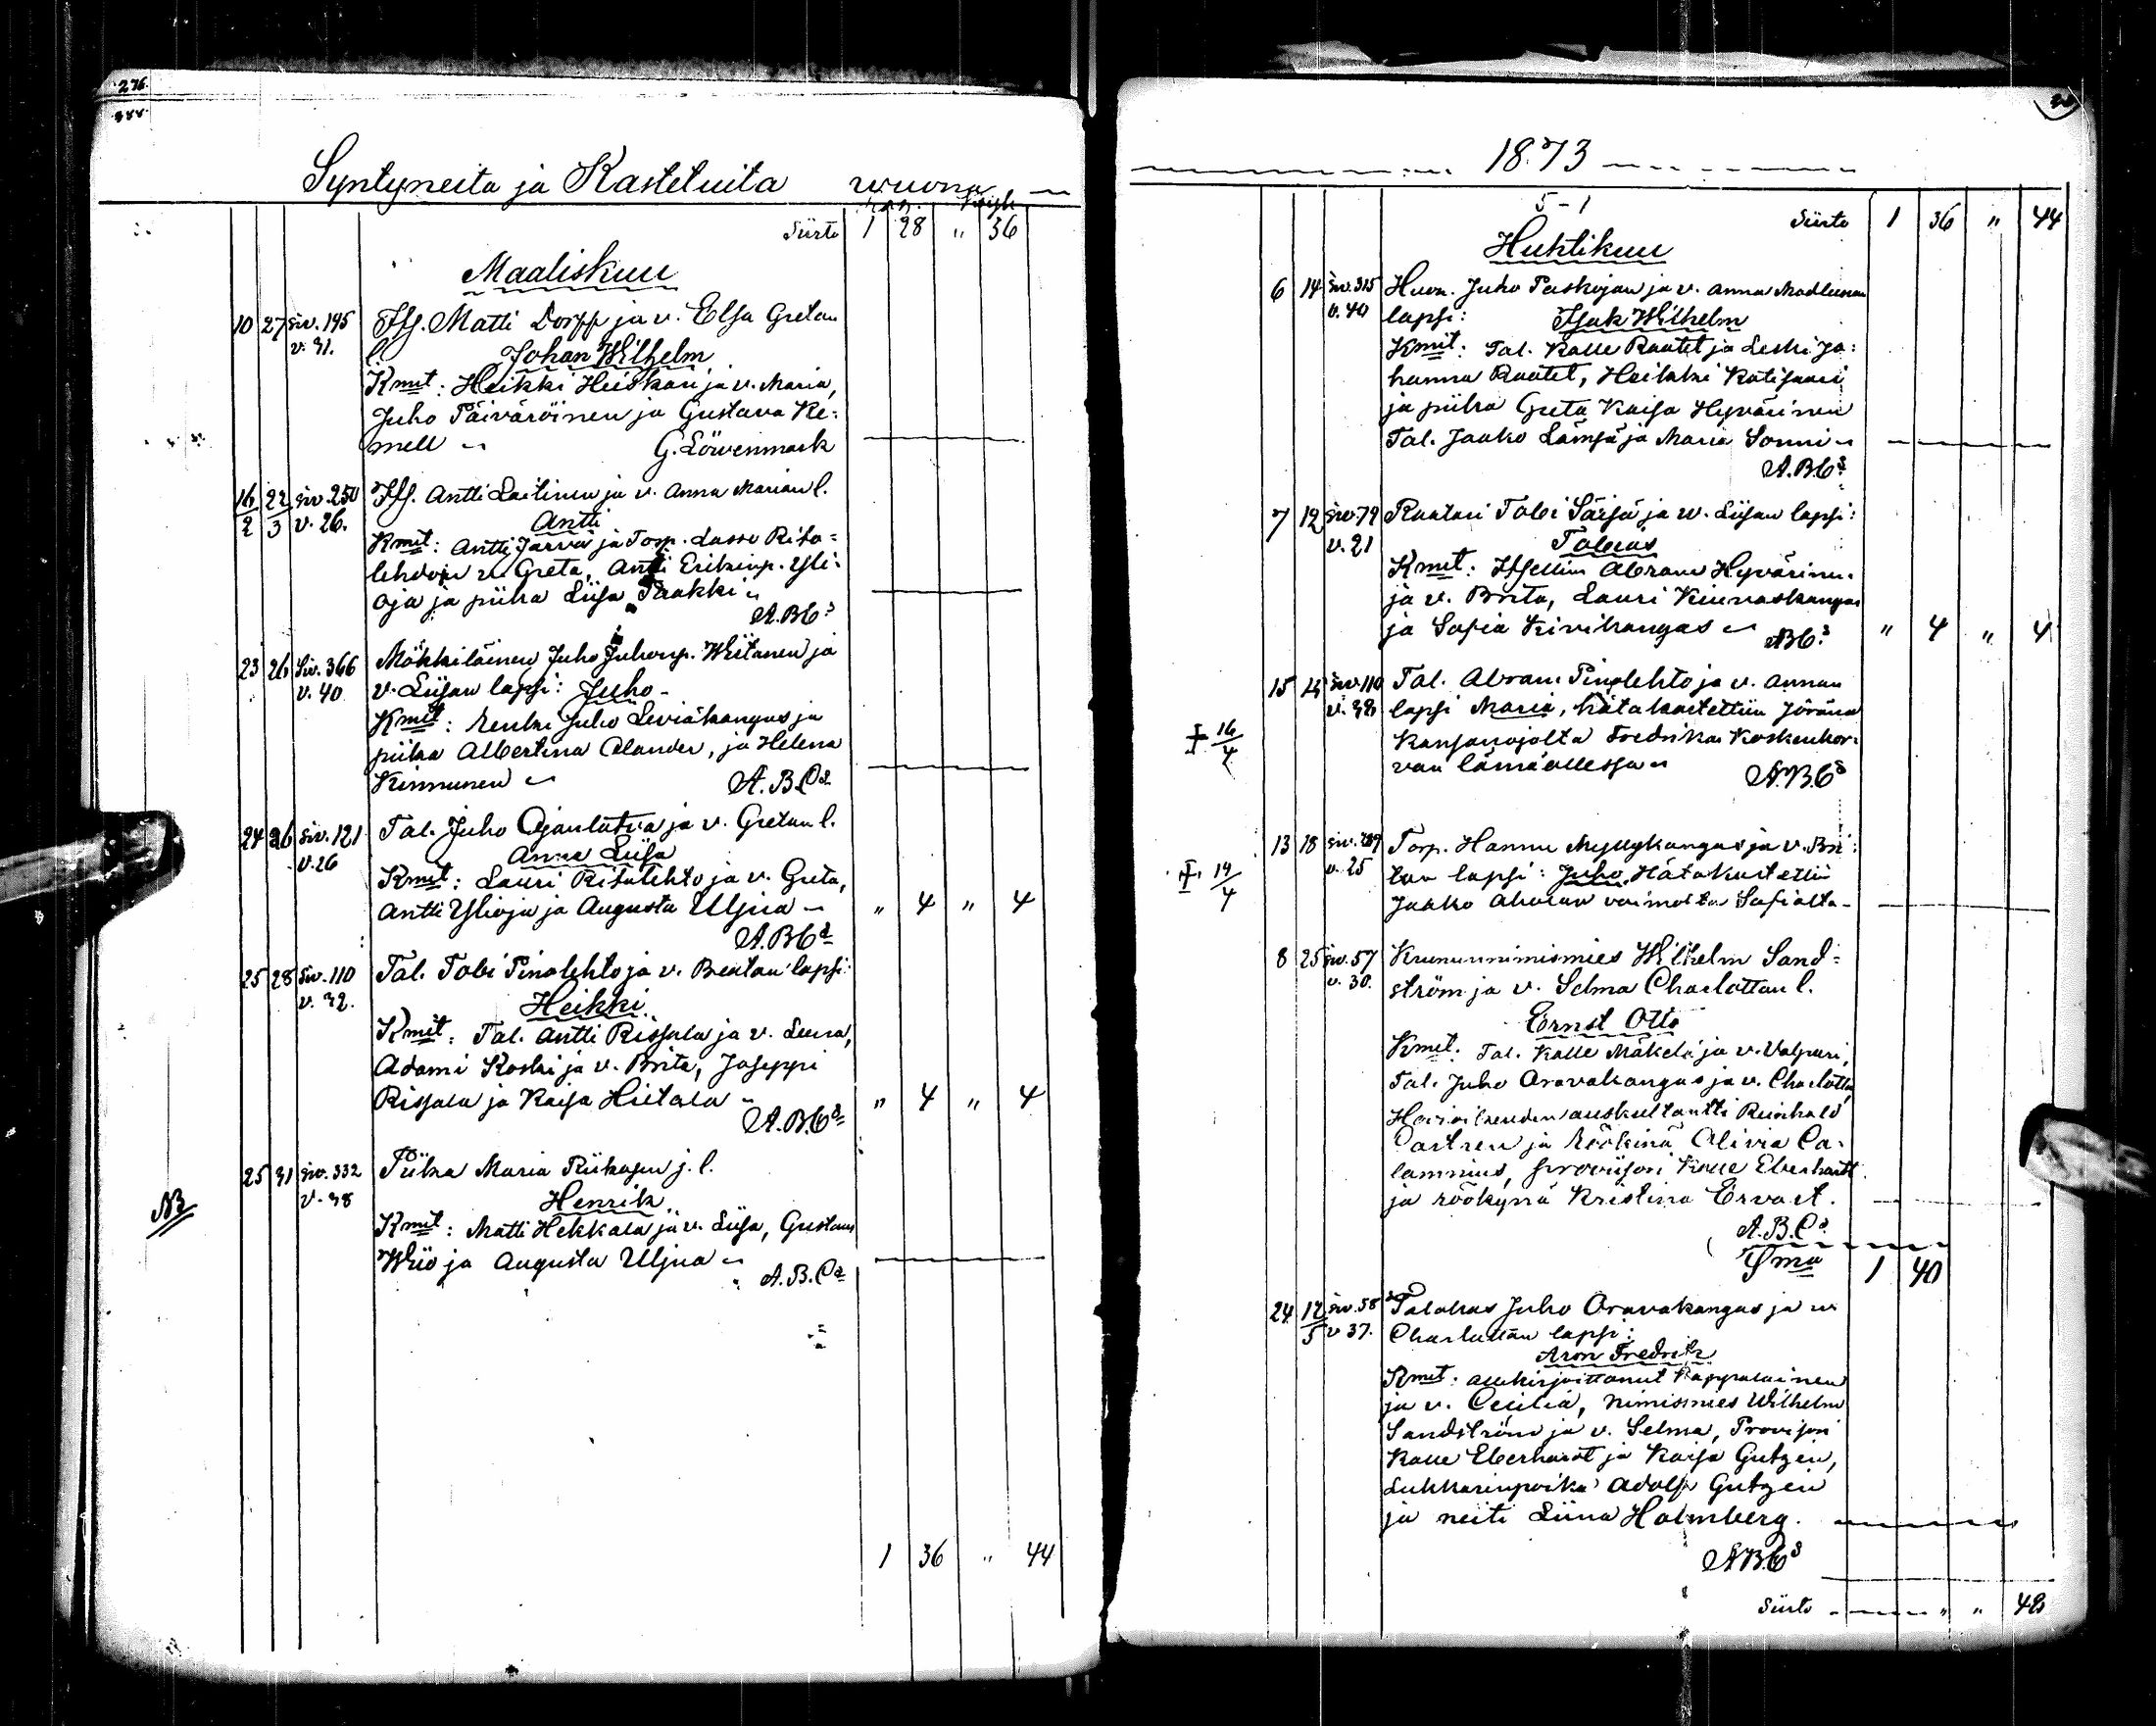 276.
Syntyneita ja Kastetuita wuonna
Siirto 1 28 " 36
Maaliskuu
10 27 siv. 195 Its. Matti Dorff ja v. Elsa Gretan
v. 31. l. Johan Wilhelm
Kmit: Heikki Heiskari ja v. Maria,
Juho Päiväröinen ja Gustava Ke:
mell G. Löwenmark
16/2 22/3 siv. 250 Its. Antti Laitinen ja v. Anna Marian l.
v. 26. Antti
Kmit: Antti Järvi ja Torp. Lasse Rita=
lehdon v. Greta, Antti Erikinp. Yli:
oja ja piika Liisa Paakki
A.B.C:s
23 26 Siv. 366 Mökkiläinen Juho Juhonp. Wiitanen ja
v. 40 v. Liisan lapsi: Juho
Kmit: Renki Juho Leviäkangas ja
piika Albertina Alander, ja Helena
Kinnunen A.B.C:s
24 26 siv. 121 Tal. Juho Ojanlatva ja v. Gretan l.
v. 26 Anna Liisa
Kmit: Lauri Ritalehto ja v. Greta,
Antti Ylioja ja Augusta Uljua " 4 " 4
A.B.C:s
25 28 siv. 110 Tal. Tobi Pinolehto ja v. Beatan lapsi:
v. 32. Heikki
Kmit: Tal. Antti Rissala ja v. Leena,
Adami Koski ja v. Brita, Joseppi
Rissala ja Kaisa Hietala " 4 " 4
A.B.C:s
25 31 siv. 332 Piika Maria Piikasen j. l.
NB v. 38 Henrik
Kmit: Matti Hekkala ja v. Liisa, Gustava
Wiio ja Augusta Uljua
A.B.C:s
1 36 " 44
1873
5-1 Siirto 1 36 " 44
Huhtikuu
6 14 siv. 315 Huon. Juho Paskojan ja v. Anna Madleenan
v. 40 lapsi: Isak Wilhelm
Kmit: Tal. Kalle Raatet ja Leski Jo:
hanna Raatet, Heikki Katisaari
ja piika Greta Kaisa Hyvärinen
Tal. Jaako Lämsä ja Maria Sonni
A.B.C:s
7 12 siv. 79 Raatari Tobi Säisä ja w. Liisan lapsi:
v. 21 Tobias
Kmit: Itsellin Abram Hyvärinen
ja v. Brita, Lauri Kinnaskangas
ja Sofia Kivikangas ABC:s " 4 " 4
15 siv. 110 Tal. Abram Pinolehto ja v. Annan
v. 32 lapsi Maria, hätäkastettiin Jöränä
† 16/4 Kansanojalta Fredrika Koskenkor:
van läsnäollessa
A.B.C:s
13 18 siv. 289 Torp. Hannu Myllykangas ja v. Bri:
† 14/4 v. 25 tan lapsi: Juho, Hätäkastettiin
Jaako Aholan vaimolta Sofialta
8 25 siv. 57 Kruununnimismies Wilhelm Sand=
v. 30. ström ja v. Selma Charlottan l.
Ernst Otto
Kmit: Tal. Kalle Mäkelä ja v. Valpuri,
Tal. Juho Oravakangas ja v. Charlotta,
Hovioikeuden auskultantti Reinhold
Castren ja röökinä Olivia Ca:
lamnius, provisori Kalle Eberhardt
ja röökynä Kristina Ervast.
A.B.C:s
Sma 1 40
24 12/5 siv. 58 Talokas Juho Oravakangas ja w
v 37. Charlottan lapsi:
Aron Fredrik
Kmit: allekirjoittanut Kappalainen
ja v. Cecilia, nimismies Wilhelm
Sandström ja v. Selma, Provisori
Kalle Eberhardt ja Kaisa Gutzén,
Lukkarinpoika Adolf Gutzén
ja neiti Liina Holmberg.
A.B.C:s
Siirto " " 48